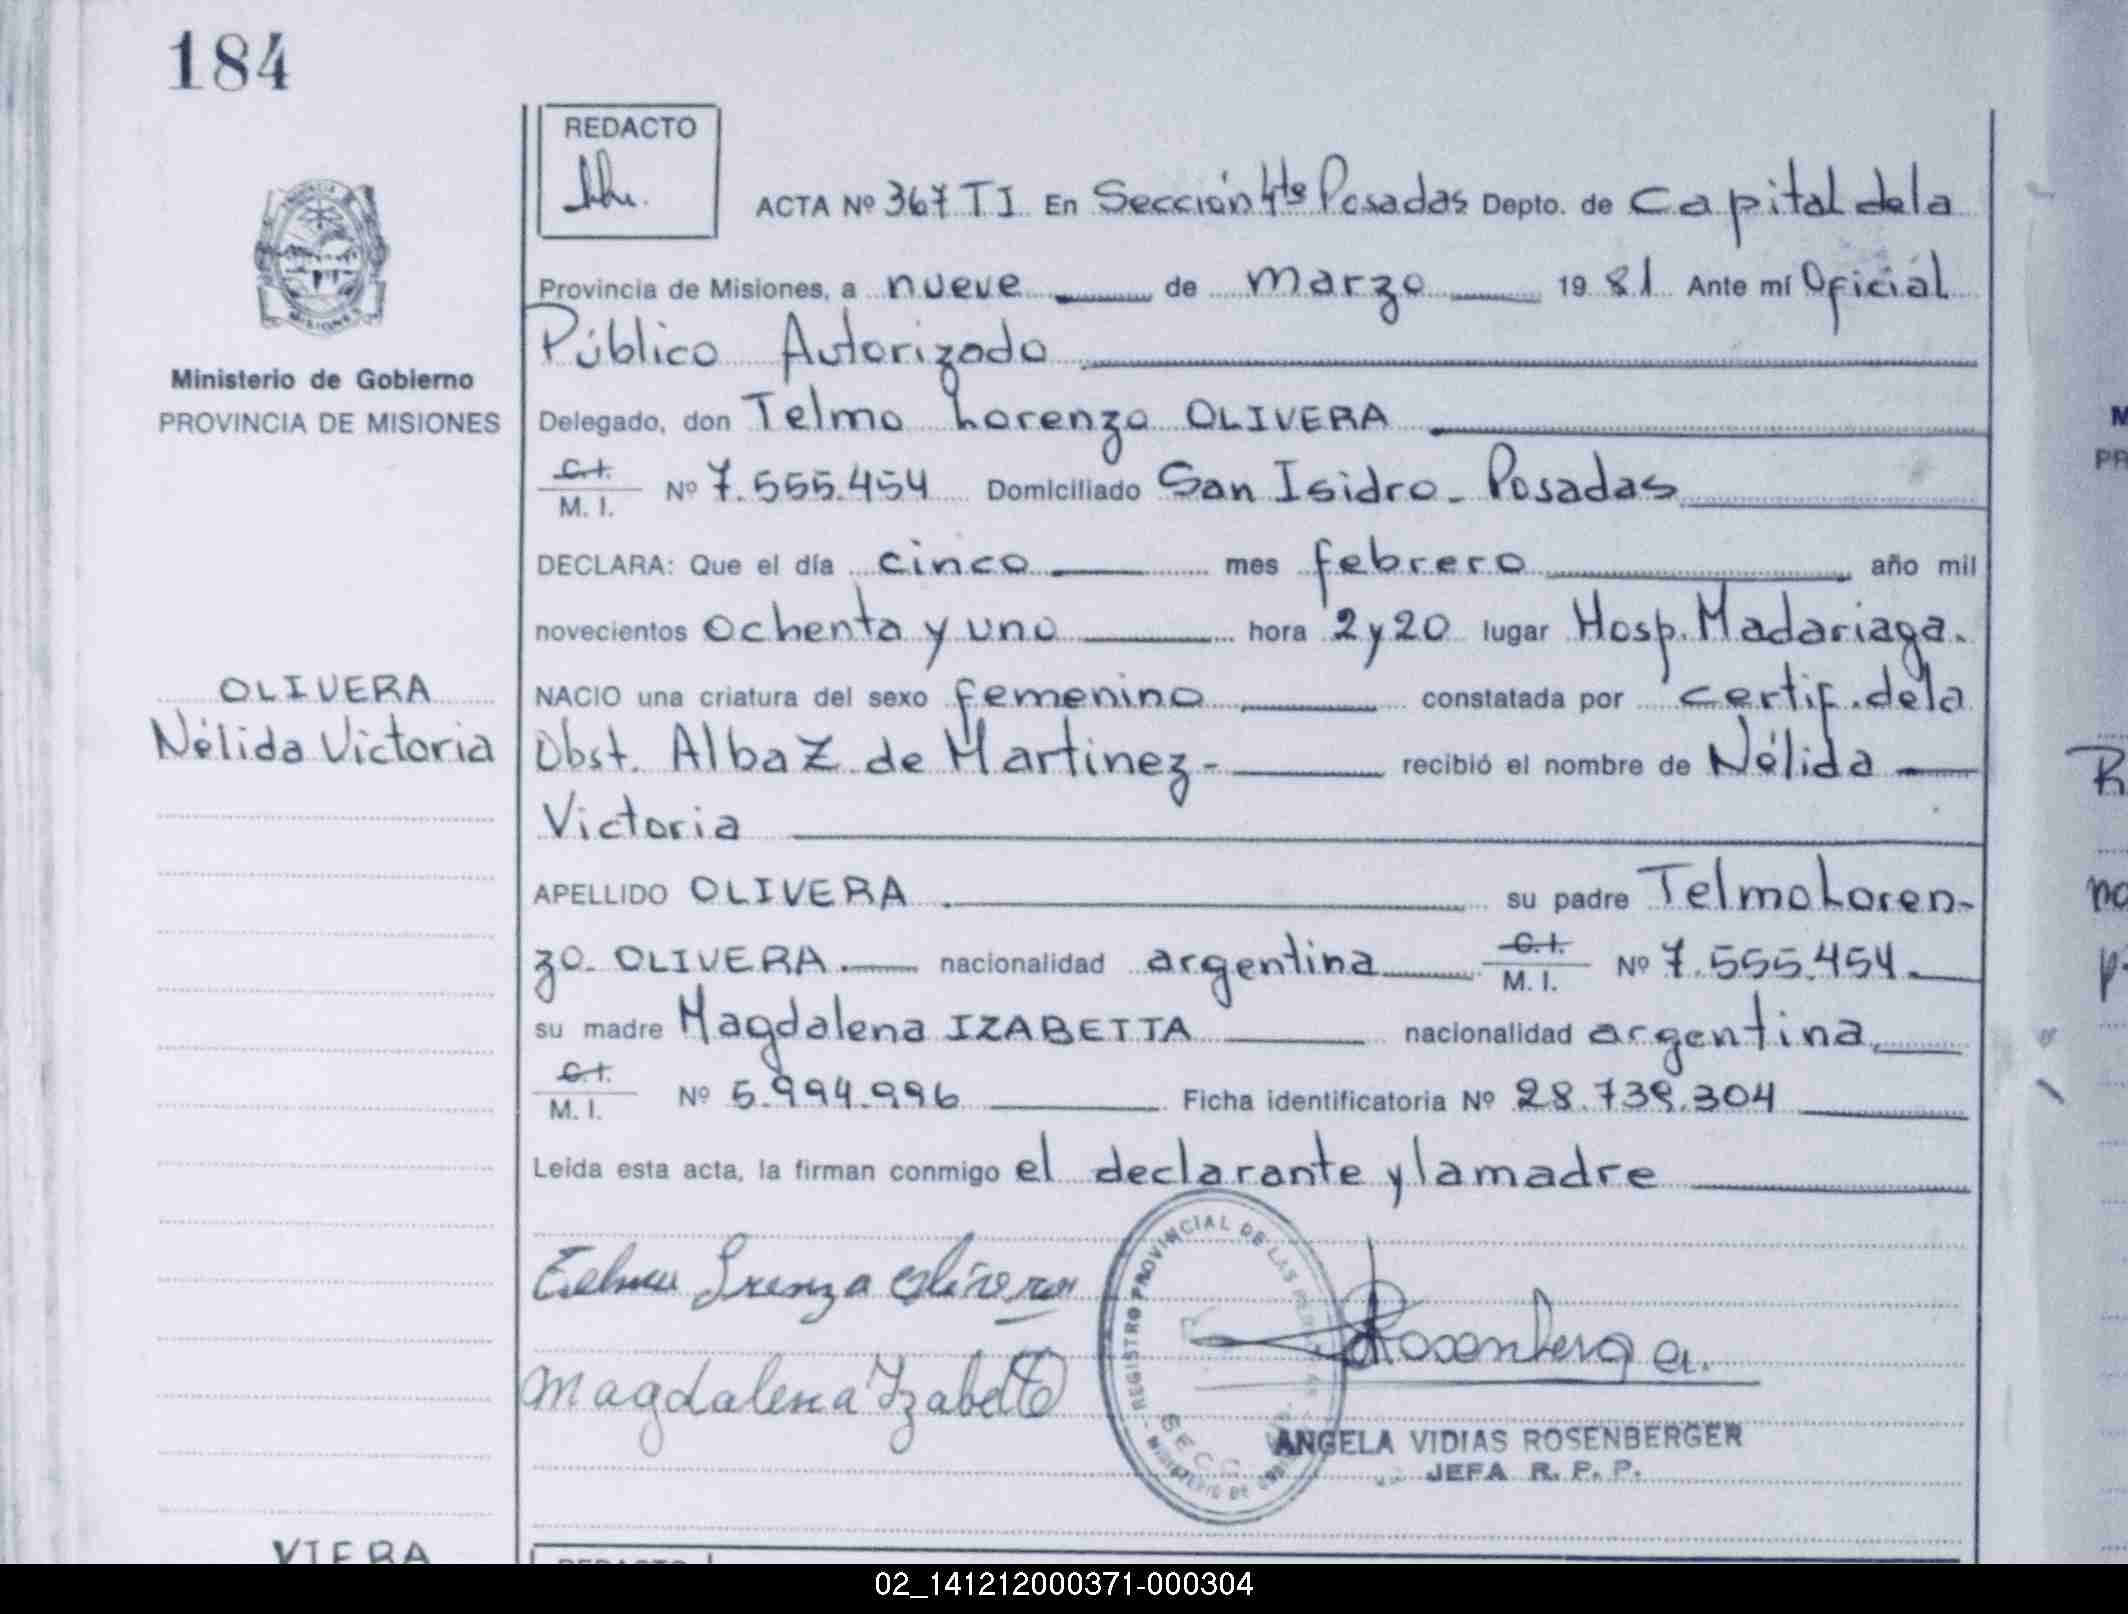 184
REDACTO
ACTA Nº 367 T I En Sección 4ta Posadas Depto. de Capital de la
Provincia de Misiones, a nueve de marzo 1981 Ante mí Oficial
Público Autorizado
Ministerio de Gobierno
PROVINCIA DE MISIONES
Delegado, don Telmo Lorenzo OLIVERA
C.I.
M. I. Nº 7.555.454 Domiciliado San Isidro - Posadas
DECLARA: Que el día cinco mes febrero año mil
novecientos ochenta y uno hora 2 y 20 lugar Hosp. Madariaga.
OLIVERA
Nélida Victoria
NACIO una criatura del sexo femenino constatada por certif. de la
Obst. Alba Z. de Martinez- recibió el nombre de Nélida
Victoria
APELLIDO OLIVERA su padre Telmo Loren-
zo OLIVERA nacionalidad argentina C.I.
M. I. Nº 7.555.454
su madre Magdalena IZABETTA nacionalidad argentina
C.I.
M. I. Nº 5.994.996 Ficha identificatoria Nº 28.739.304
Leída esta acta, la firman conmigo el declarante y la madre
Telmo Lorenzo Olivera
Magdalena Izabetta
REGISTRO PROVINCIAL DE LAS
MINISTERIO DE
SECC
Rosenberg
ANGELA VIDIAS ROSENBERGER
JEFA R. P. P.
VIERA
REDACTO
02_141212000371-000304